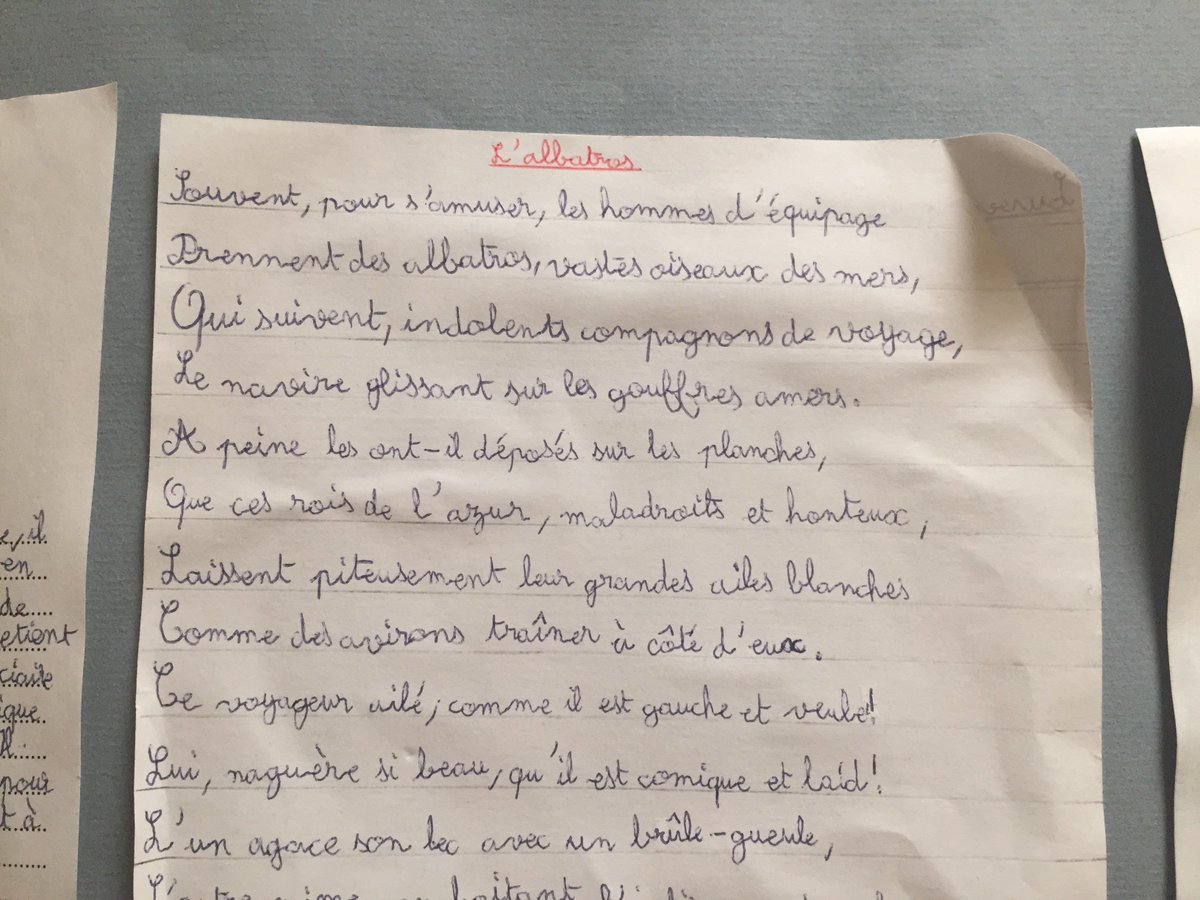 L'albatros
Souvent, pour s'amuser, les hommes d'équipage
Prennent des albatros, vastes oiseaux des mers,
Qui suivent, indolents compagnons de voyage,
Le navire glissant sur les gouffres amers.
A peine les ont-il déposés sur les planches,
Que ces rois de l'azur, maladroits et honteux,
Laissent piteusement leur grandes ailes blanches
Comme des avirons traîner à côté d'eux.
Ce voyageur ailé, comme il est gauche et veule!
Lui, naguère si beau, qu'il est comique et laid!
L'un agace son bec avec un brûle-gueule,
L'autre mime, en boitant
e, il
en
de....
etient
ique
pour
t à